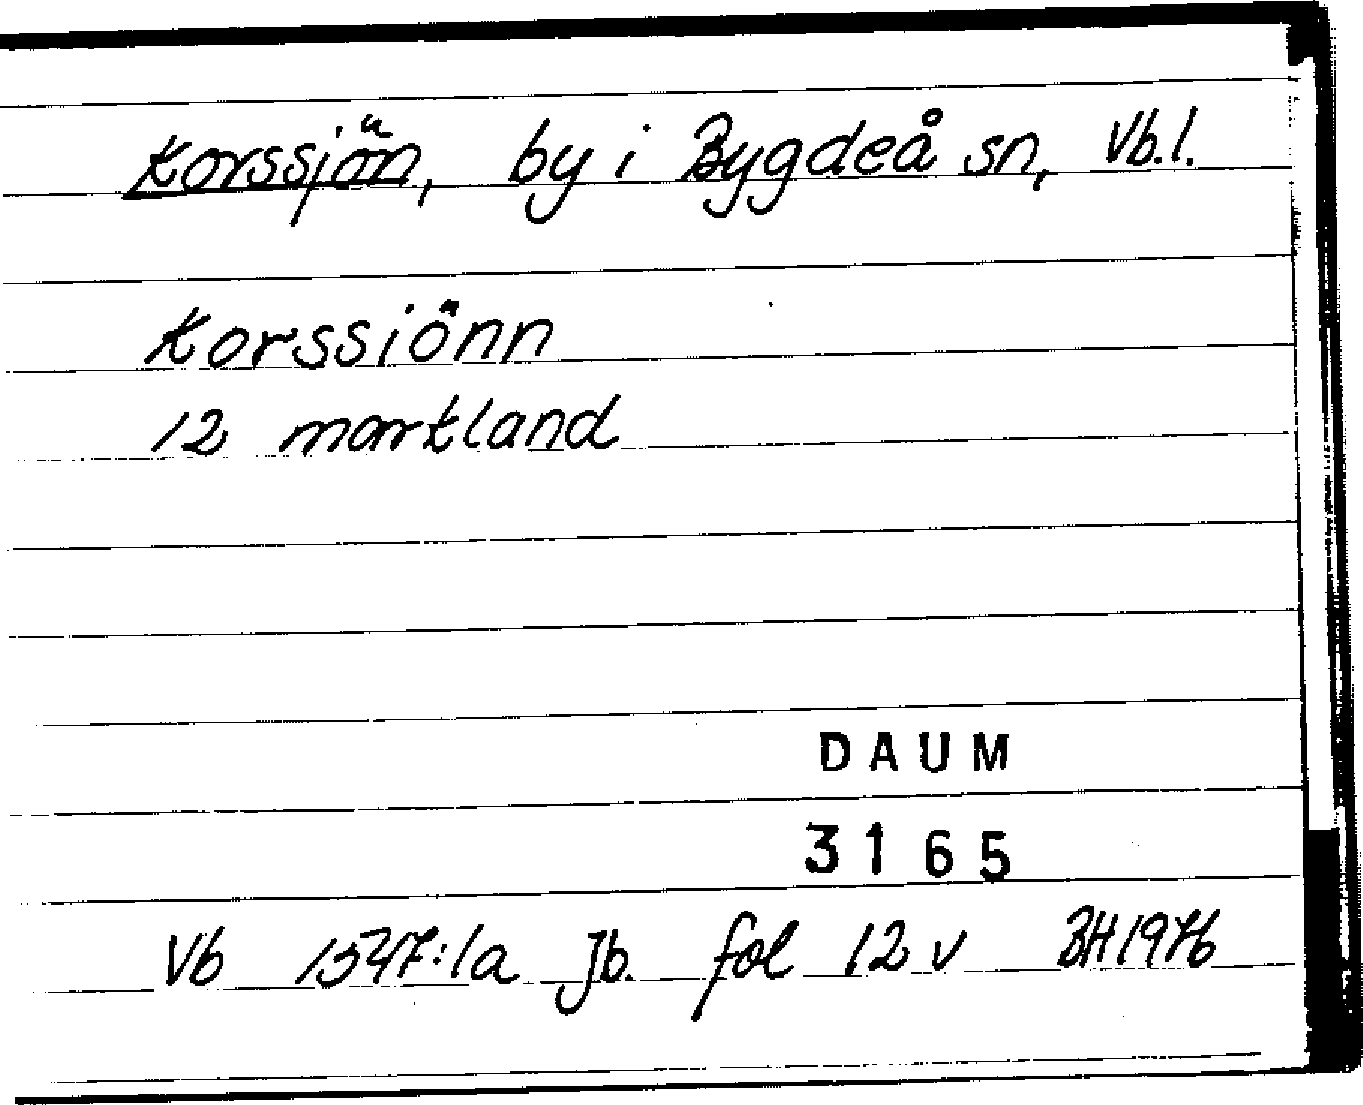 Korssjön, by i Bygdeå sn, Vb.l.
Korssiönn
12 markland
DAUM
3165
Vb 1547:1a Jb. fol 12 v BH1976